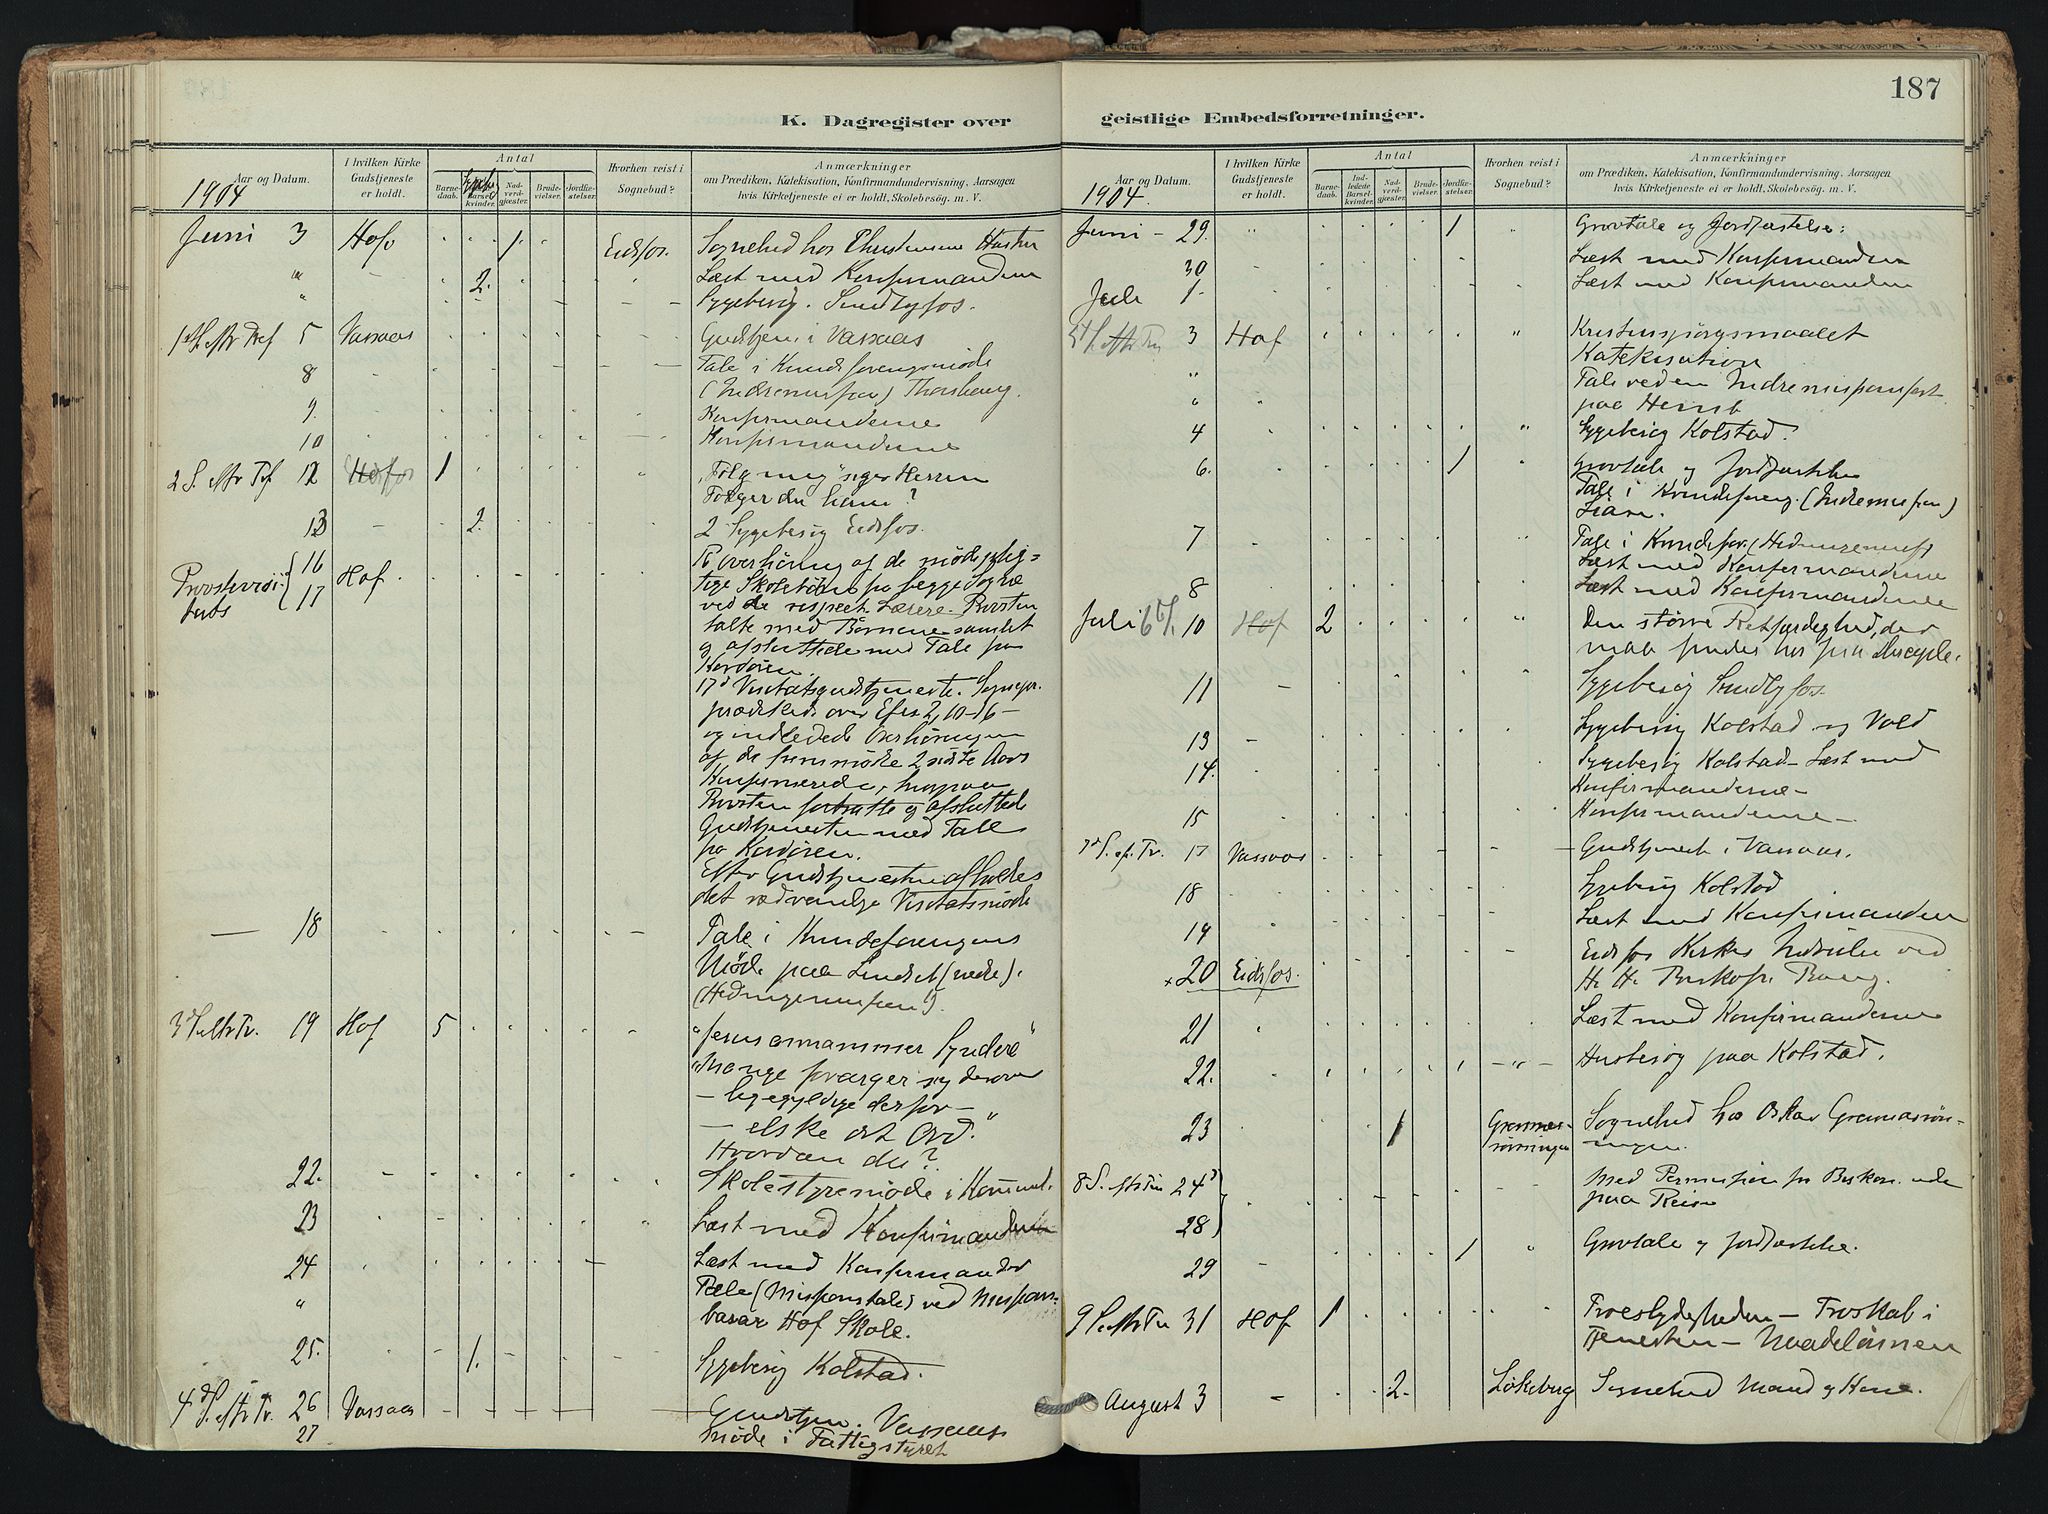 187
K. Dagregister over geistlige Embedsforretninger.
Aar og Datum.
I hvilken Kirke Gudstjeneste er holdt.
Antal
Barnedaab.
Barselkvinder.
Nadverdgjæster.
Brudevielser.
Jordfæstelser.
Hvorhen reist i Sognebud?
Anmærkninger
om Prædiken, Katekisation, Konfirmandundervisning, Aarsagen
hvis Kirketjeneste ei er holdt, Skolebesøg. m. V.
1904
Juni 3 Hof 1 Eidsfos. Sognebud hos Christensens Hustru
" 2. Læst med Konfirmanderne
" Sygebesøg.
5 Vassaas Gudstjen. i Vassaas
8 Tale i Kvindeforeningsmøde
(Indremission)
9. Konfirmanderne
10 Konfirmanderne
2 S. eftr Tref 12 1 "Følg mig" siger Herren
Følger du ham?
13 2. 2 Sygebesøg Eidsfos.
Provstevisitats 16 17 Hof. Overhøring af de mødeplig-
tige Skolebørn fra begge Sogne
ved de respect. Lærere. Provsten
talte med Børnene samlet
og afsluttede med Tale fra
Kordøren.
17d Visitatsgudstjeneste. Sognepr.
prædikede over Efes 2, 10-16 -
og indledede Overhøringen
af de fremmødte 2 sidste Aars
Konfirmerede, hvorpaa
Provsten fortsatte og afsluttede
Gudstjenesten med Tale
fra Kordøren.
Efter Gudstjenesten afholdtes
det sædvanlige Visitatsmøde
— 18 Tale i Kvindeforeningens
Møde paa
(Hedningemissionen)
3d S. eftr Tr. 19 Hof 5 "Jesus annammer Syndere"
"Mange forarger sig derover
— ligegyldige derfor —
— elske det Ord."
Hvordan du?
22. Skolestyremøde i
23 Læst med Konfirmanderne
24 Læst med Konfirmander
" Tale (Missionstale) ved Missions-
basar Hof Skole.
25. 1. Sygebesøg Kolstad.
4d S. eftr Tr. 26 Vassaas Gudstjen. Vassaas
27 Møde i Fattigstyret
Aar og Datum.
I hvilken Kirke Gudstjeneste er holdt.
Antal
Barnedaab.
Indledede Barselkvinder.
Nadverdgjæster.
Brudevielser.
Jordfæstelser.
Hvorhen reist i Sognebud?
Anmærkninger
om Prædiken, Katekisation, Konfirmandundervisning, Aarsagen
hvis Kirketjeneste ei er holdt, Skolebesøg. m. V.
1904.
Juni - 29. 1 Gravtale og Jordfæstelse.
30 Læst med Konfirmanderne
Juli 1. Læst med Konfirmanderne
3 Hof Kristenspørgsmaalet
Katekisation
" Tale ved en Indremissionsfest
paa
4 Sygebesøg Kolstad.
6. 1 Gravtale og Jordfæstelse
Tale i Kvindeforening. (Indremission)
7 Tale i Kvindefor. (Hedningemis)
Læst med Konfirmanderne
8 Læst med Konfirmanderne
Juli 10 Hof 2 Den større Retfærdighed, der
maa findes hos
11 Sygebesøg
13 Sygebesøg Kolstad og Vold
14. Sygebesøg Kolstad - Læst med
Konfirmanderne -
15 Konfirmanderne -
7d S. ef. Tr. 17 Vassaas Gudstjenest i Vassaas.
18 Sygebesøg Kolstad
19 Læst med Konfirmanderne
x 20 Eidsfos. Eidsfos Kirkes Indvielse ved
Hr. Hr. Biskop Bang.
21 Læst med Konfirmanderne
22. Husbesøg paa Kolstad.
23 1 Sognebud hos Oskar
8 S. eftr Trin 24d Med Permission fra Biskopen
paa Reise
28
29 1 Gravtale og Jordfæstelse.
9 S. eftr Tr 31 Hof 1 Troskab i
Tjenesten - Naadelønnen
August 3 2. Løkeberg Sognebud Mand og Kone.